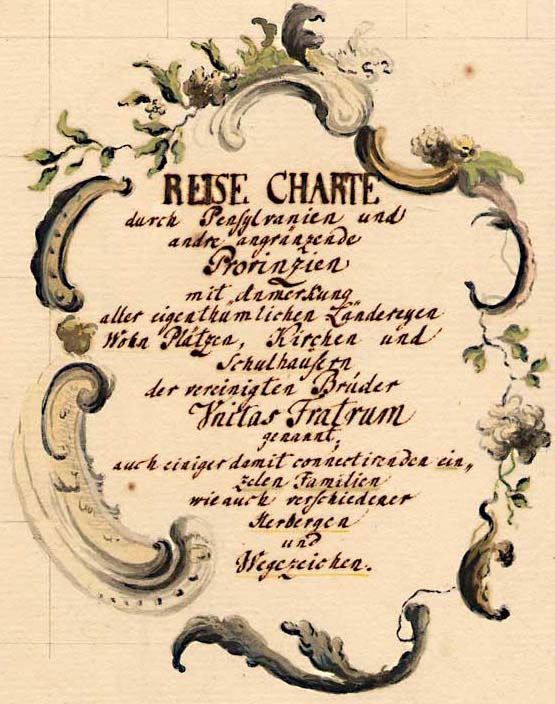 REISE CHARTE
durch Pensylvanien und
andre angränzende
Provinzien
mit Anmerkung
aller eigenthumlichen Ländereyen
Wohn Plätzen, Kirchen und
Schulhausern
der vereinigten Brüder
Unitas Fratrum
genannt,
auch einiger damit connectirenden ein„
zelen Familien
wie auch verschiedener
Herbergen
und
Wegezeichen.